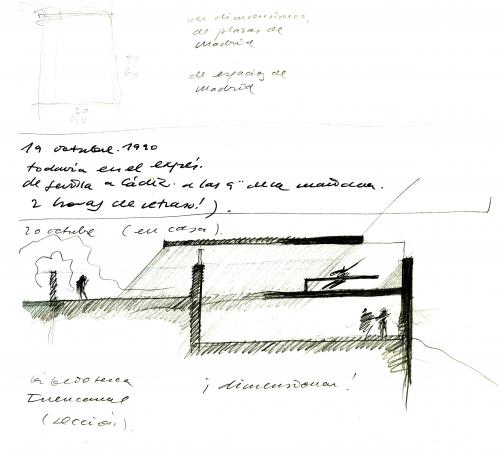 ver dimensiones,
de plazas de
Madrid
90
60
de espacios de
Madrid
20
40
19 octubre. 1990
todavía en el exprés.
de Sevilla a Cádiz. a las 9 de la mañana.
2 horas de retraso!).
20 octubre (en casa).
biblioteca
(sección).
¡dimensionar!